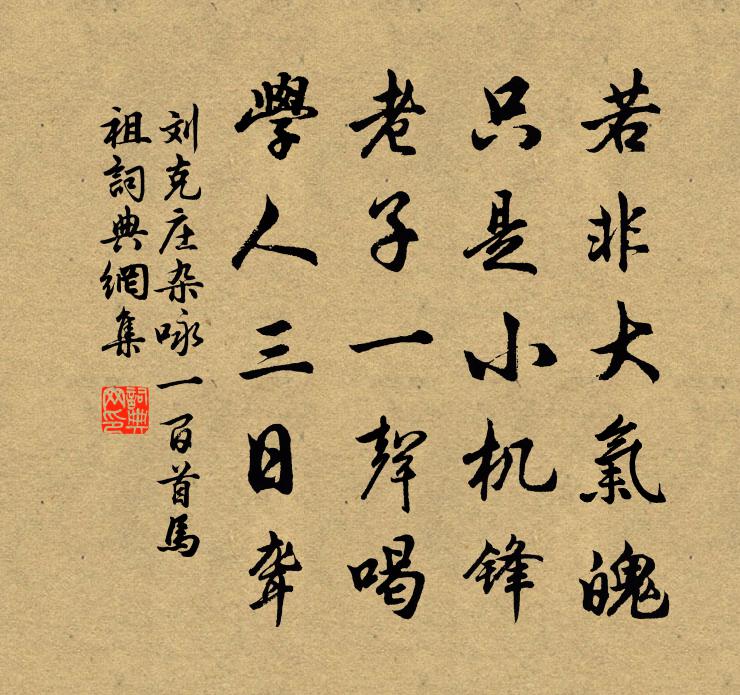 若非大氣魄
只是小机锋
老子一聲喝
學人三日聋
刘克庄杂咏一百首馬
祖詞典網集
詞典网印